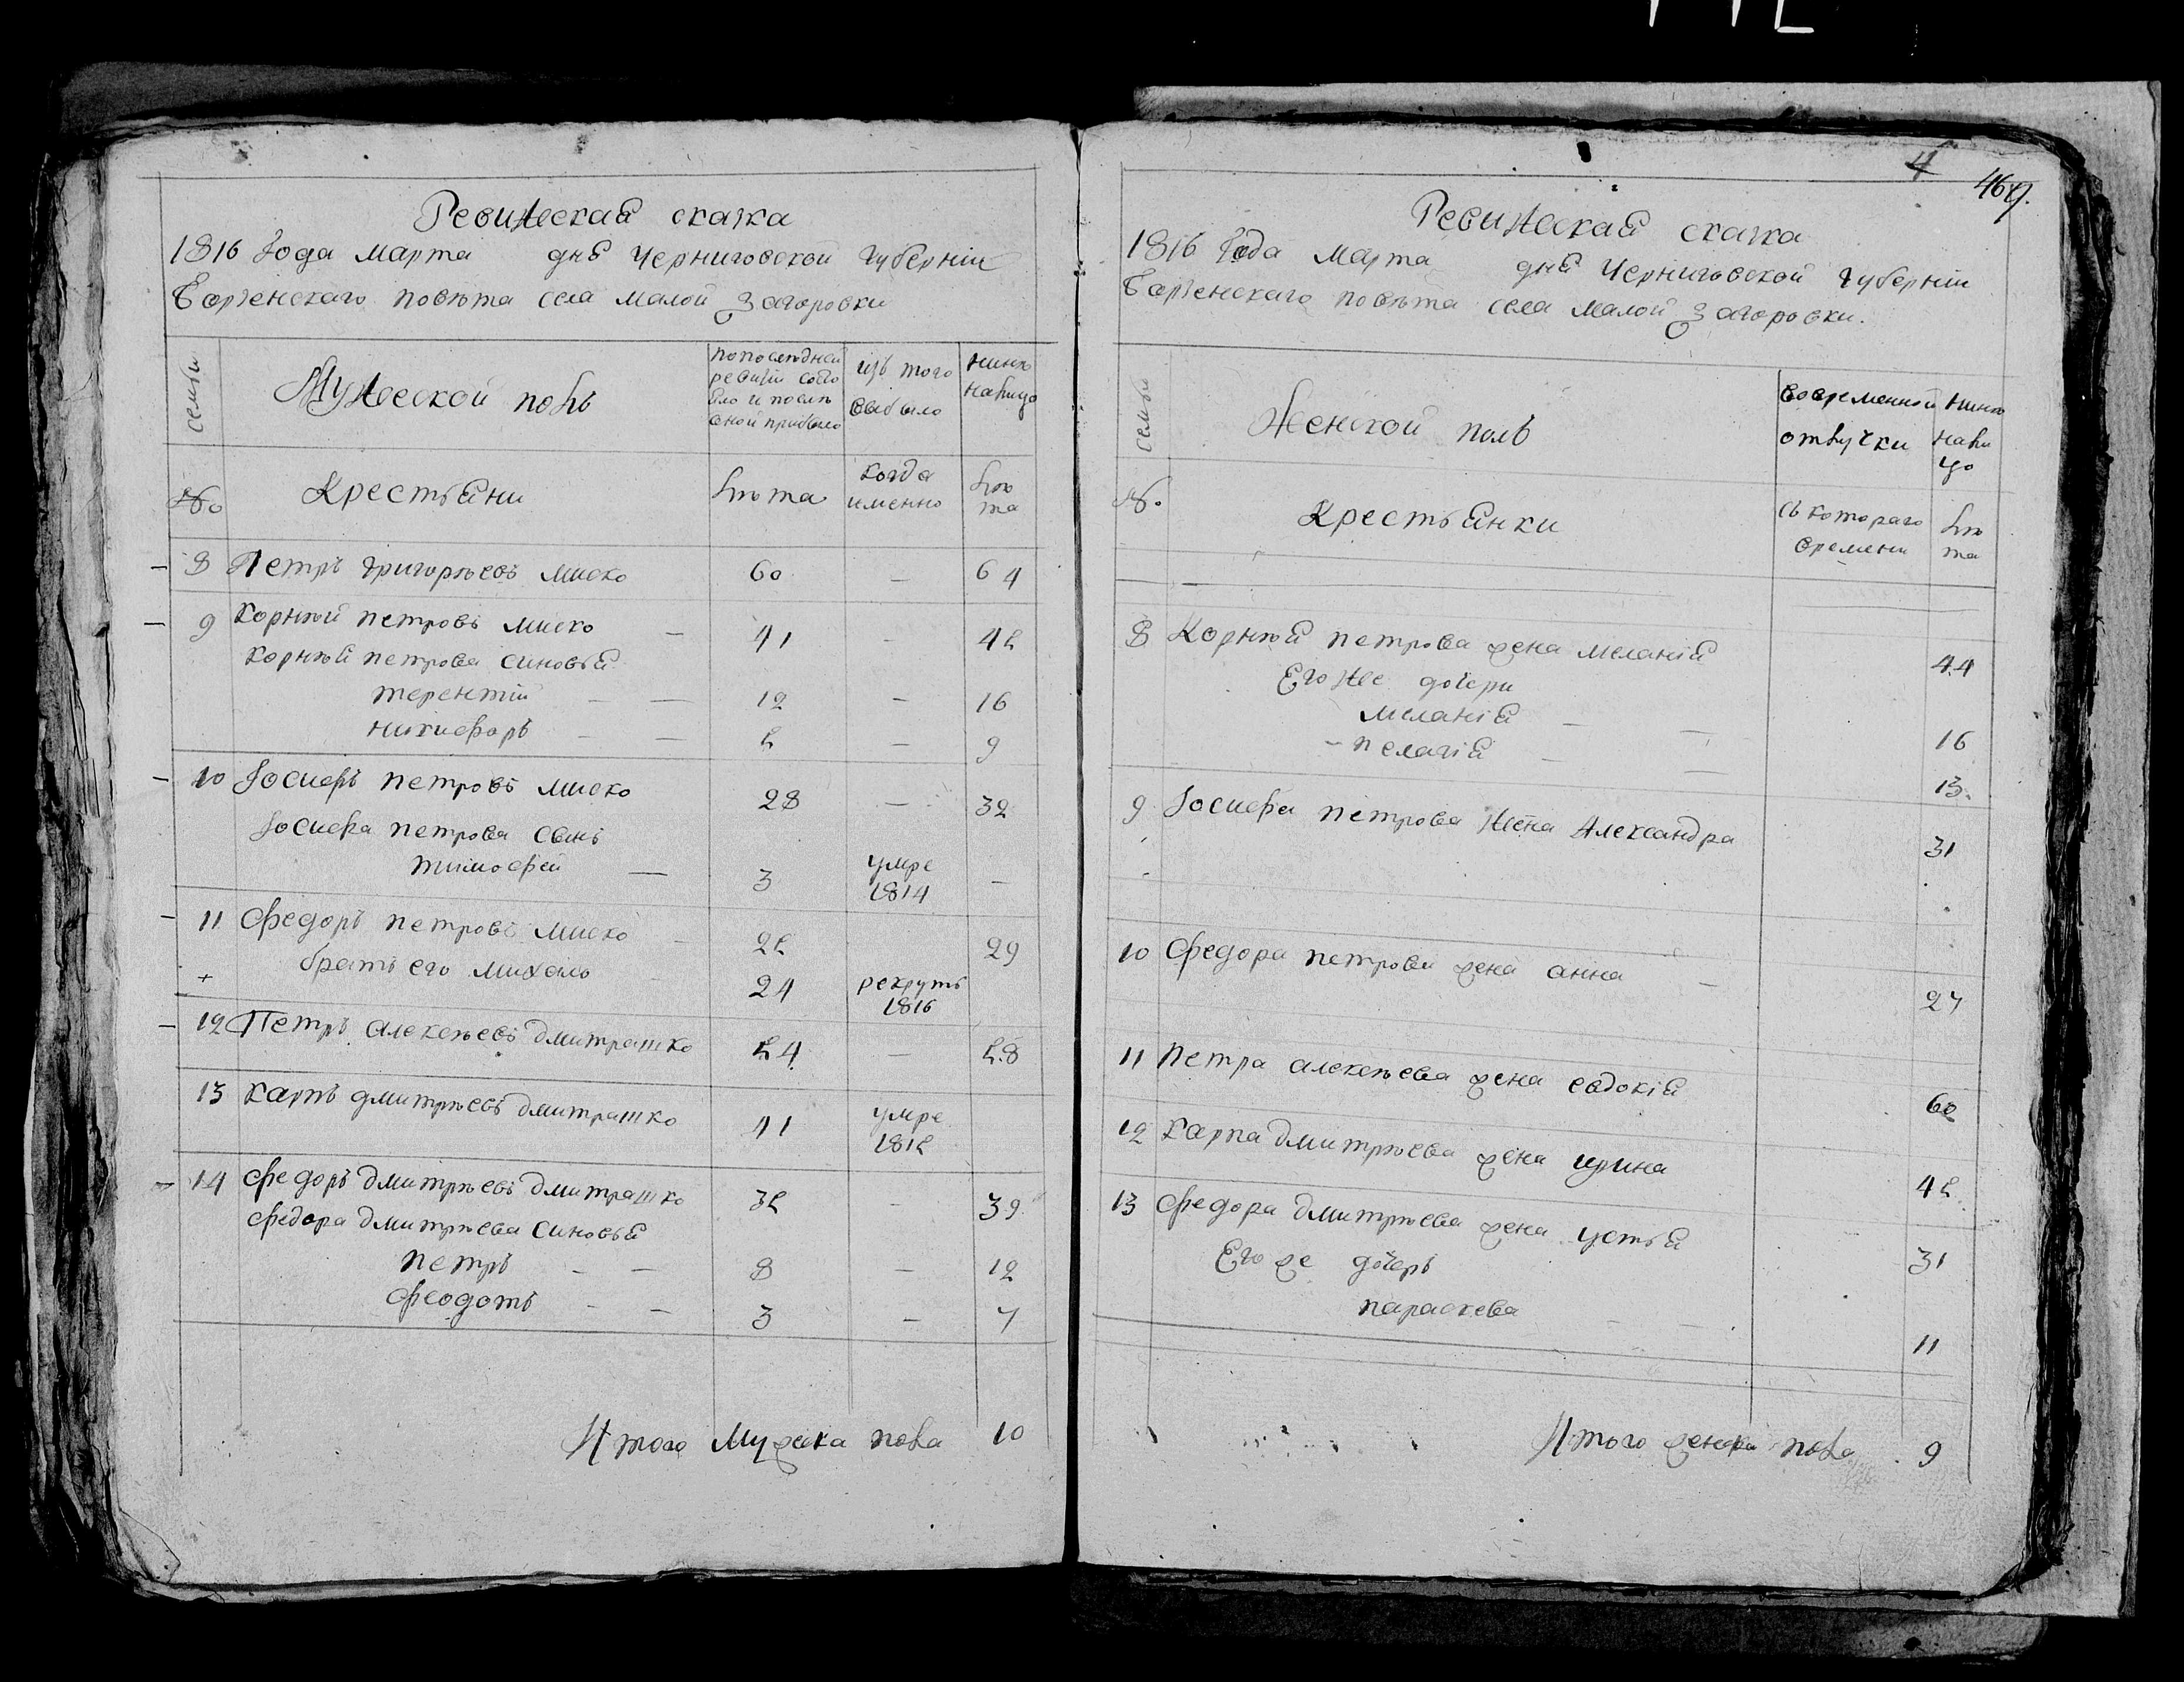 Ревижская сказка
1816 Года Марта дня Черниговской губерніи
Борзенскаго повѣта села Малой Загоровки
семьи
Мужеской полъ
попослѣдней ревизіи состояло и послѣ оной прибыло
изъ того выбыло
нинѣ налицо
№
Крестьяни
лѣта
когда именно
лѣта
8 Петръ Григорѣевъ Миско 60 — 64
9 Корнѣй Петровъ Миско — 41 — 45
Корнѣя Петрова синовья
Терентій — — 12 — 16
Никифоръ — — 5 — 9
10 Іосифъ Петровъ Миско 28 — 32
Іосифа Петрова сынъ
Тимофей — 3 умре 1814 —
11 Федоръ Петровъ Миско 25 29
братъ его Михаль 24 рекрутъ 1816
12 Петръ Алексѣевъ Дмитрашко 54 — 58
13 Карпъ Дмитрѣевъ Дмитрашко 41 умре 1815
14 Федоръ Дмитрѣевъ Дмитрашко 35 — 39
Федора Дмитрѣева синовья
Петръ — — 8 — 12
Феодотъ — — 3 — 7
Итого мужска пола 10
4
46
Ревижская сказка
1816 Года Марта дня Черниговской губерніи
Борзенскаго повѣта села Малой Загоровки.
семьи
Женской полъ
вовременной отлучки
нинѣ налицо
№
Крестьянки
съ котораго времени
лѣта
8 Корнѣя Петрова жена Меланія 44
Его же дочери
Меланія — — 16
Пелагія — — 13.
9 Іосифа Петрова жена Александра 31
10 Федора Петрова жена Анна — 27
11 Петра Алексѣева жена Евдокія 60
12 Карпа Дмитрѣева жена Ирина 45
13 Федора Дмитрѣева жена Устья 31
Его же дочерь
Параскева — — 11
Итого женска пола 9